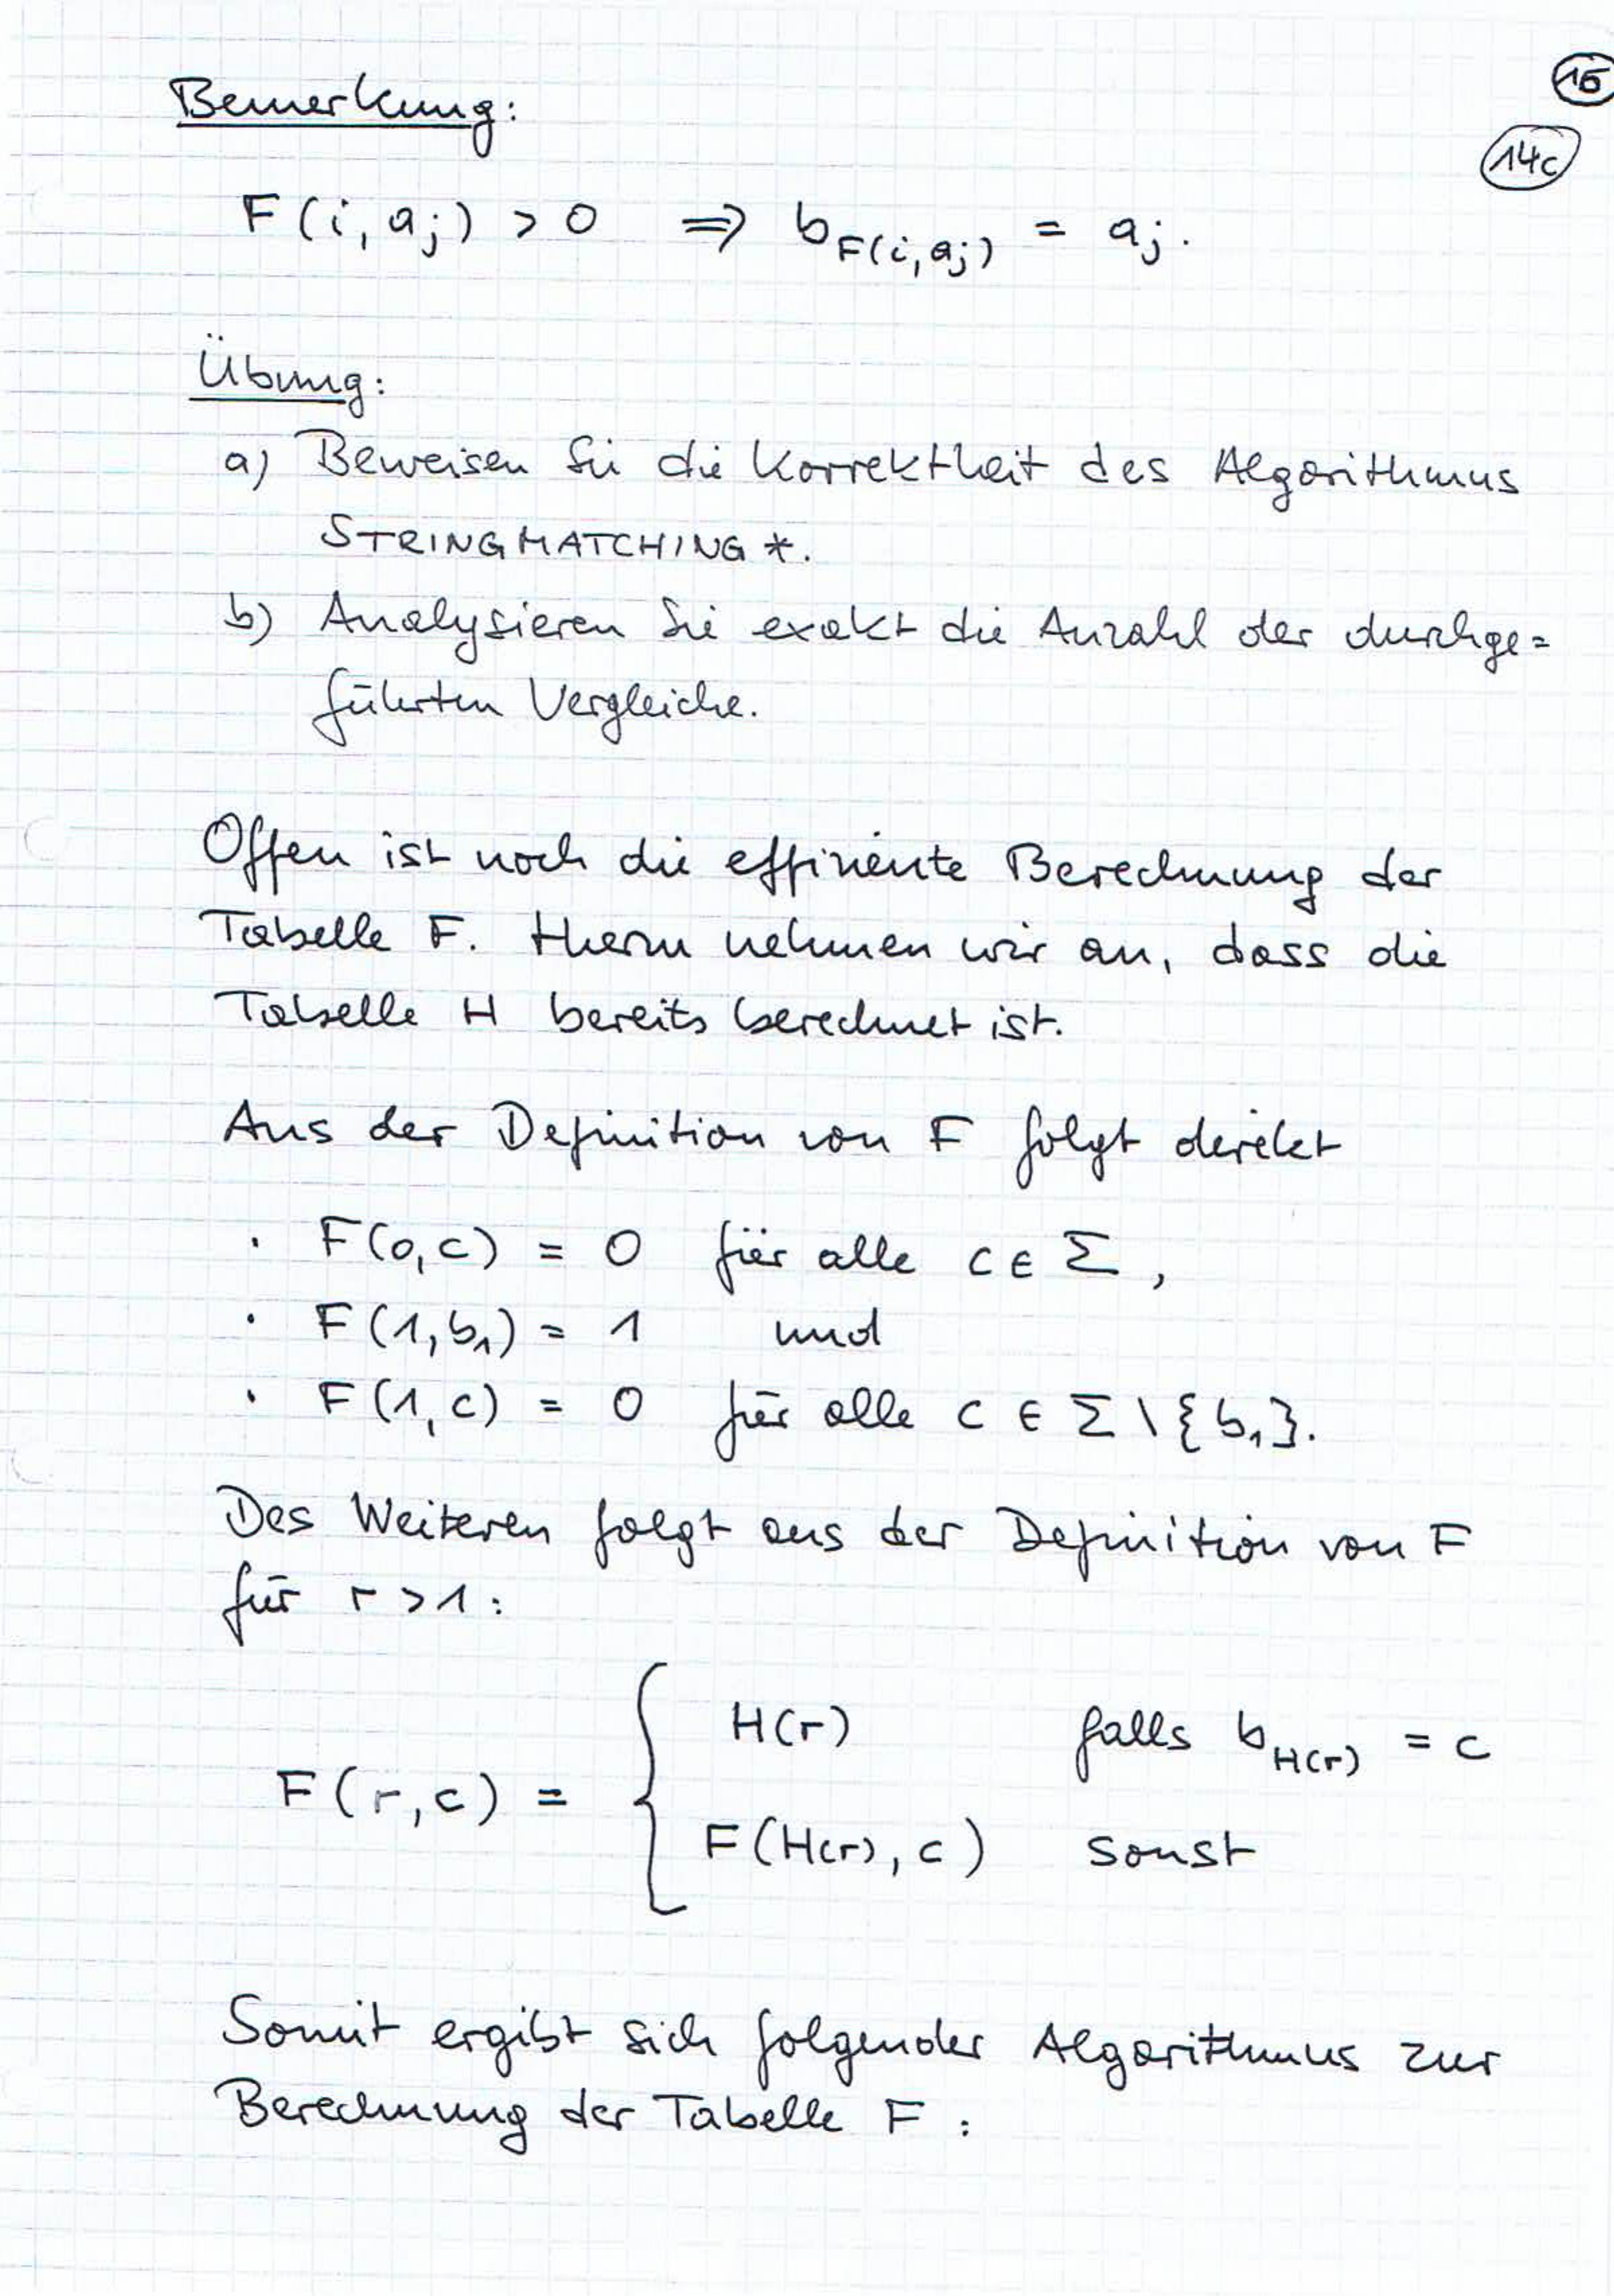 15
Bemerkung:
14c
F(i, aj) > 0 ⇒ b_F(i,aj) = aj.
Übung:
a) Beweisen Sie die Korrektheit des Algorithmus
STRINGMATCHING*.
b) Analysieren Sie exakt die Anzahl der durchge=
führten Vergleiche.
Offen ist noch die effiziente Berechnung der
Tabelle F. Hierzu nehmen wir an, dass die
Tabelle H bereits berechnet ist.
Aus der Definition von F folgt direkt
· F(0,c) = 0 für alle c ∈ Σ,
· F(1,b₁) = 1 und
· F(1,c) = 0 für alle c ∈ Σ \ {b₁}.
Des Weiteren folgt aus der Definition von F
für r > 1:
H(r) falls b_H(r) = c
F(r,c) = {
F(H(r), c) sonst
Somit ergibt sich folgender Algorithmus zur
Berechnung der Tabelle F: